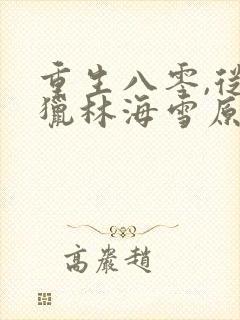 重生八零,從
獵林海雪原
高巖趙